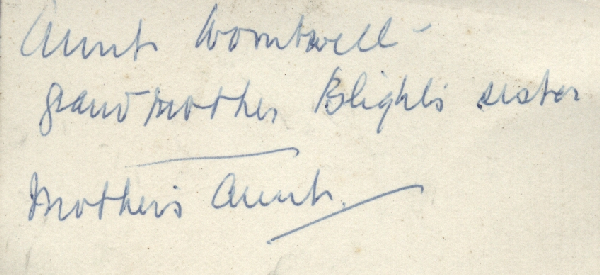 Aunt Wombwell -
grandmother Blight's sister
Mother's Aunt.